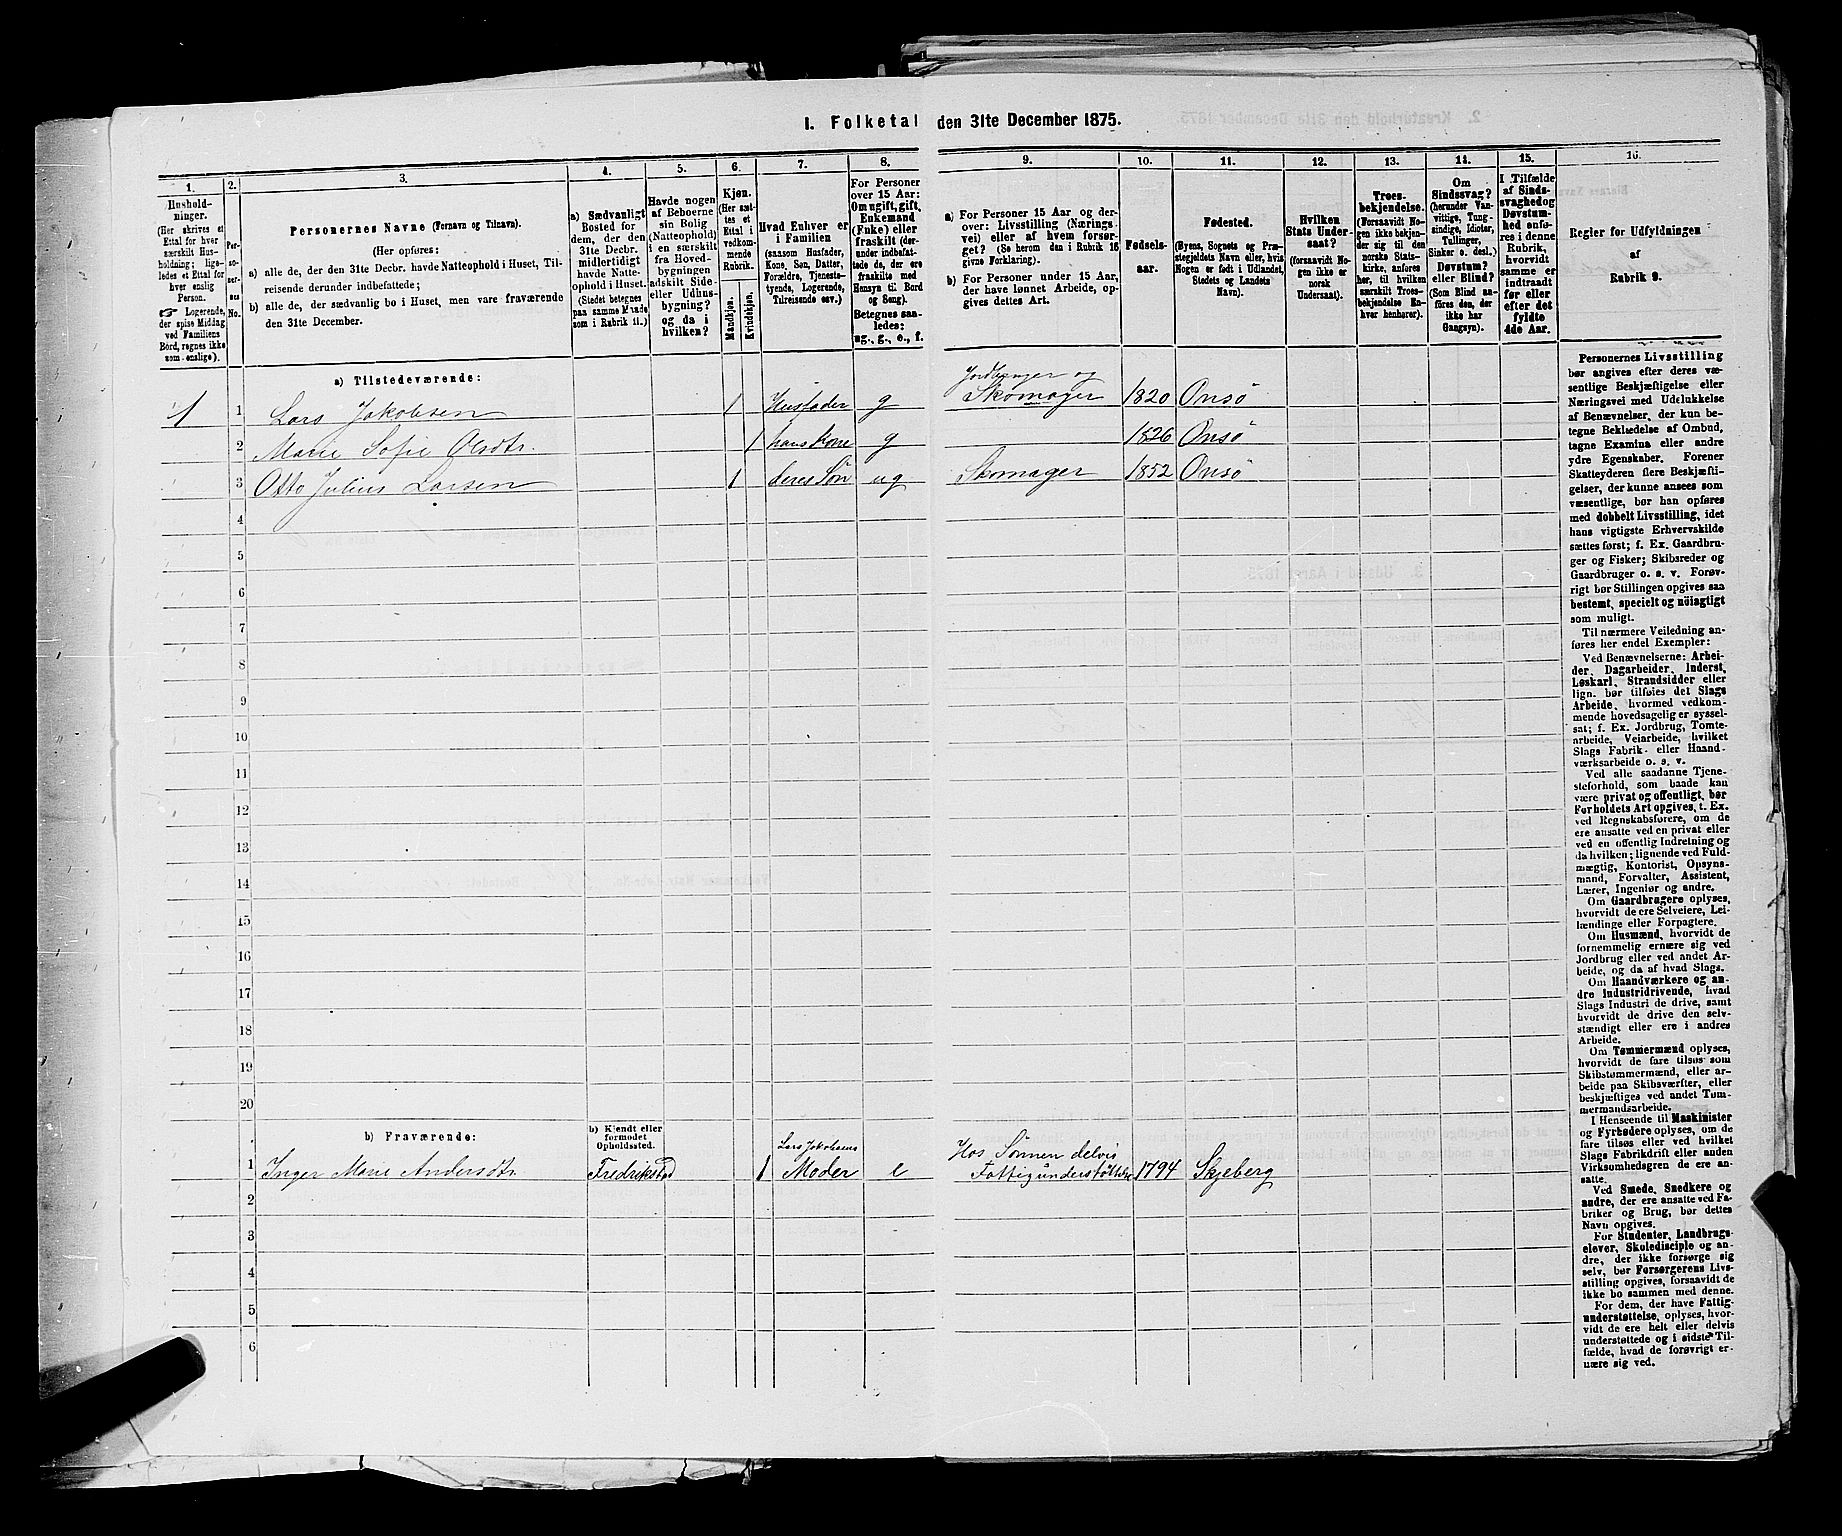 1. Folketal den 31te December 1875.
1.
2.
3.
4.
5.
6.
7.
8.
9.
10.
11.
12.
13.
14.
15.
16.
Hushold-
ninger.
(Her skrives et
Ettal for hver
særskilt Hus-
holdning; lige-
ledes et Ettal for
hver enslig
Person.
☞ Logerende,
der spise Middag
ved Familiens
Bord, regnes ikke
som enslige).
Per-
so-
ner-
nes
No.
Personernes Navne (Fornavn og Tilnavn).
(Her opføres:
a) alle de, der den 31te Decbr. havde Natteophold i Huset, Til-
reisende derunder indbefattede;
b) alle de, der sædvanlig bo i Huset, men vare fraværende
den 31te December.
a) Sædvanligt
Bosted for
dem, der den
31te Decbr.
midlertidigt
havde Natte-
ophold i Huset.
(Stedet betegnes
paa samme Maade
som i Rubrik 11.)
Havde nogen
af Beboerne
sin Bolig
(Natteophold)
i en særskilt
fra Hoved-
bygningen
adskilt Side-
eller Udhus-
bygning?
og da i
hvilken?
Kjøn.
(Her sæt-
tes et
Ettal i
vedkom-
mende
Rubrik.
Mandkjøn.
Kvindekjøn.
Hvad Enhver er
i Familien
(saasom Husfader,
Kone, Søn, Datter,
Forældre, Tjeneste-
tyende, Logerende,
Tilreisende osv.)
For Personer
over 15 Aar:
Om ugift, gift,
Enkemand
(Enke) eller
fraskilt (der-
under indbefat-
tede de, der ere
fraskilte med
Hensyn til Bord
og Seng).
Betegnes saa-
ledes:
ug., g., e., f.
a) For Personer 15 Aar og der-
over: Livsstilling (Nærings-
vei) eller af hvem forsør-
get? (Se herom den i Rubrik 16
givne Forklaring).
b) For Personer under 15 Aar,
der have lønnet Arbeide, op-
gives dettes Art.
Fødsels-
aar.
Fødested.
(Byens, Sognets og Præ-
stegjeldets Navn eller, hvis
Nogen er født i Udlandet,
Stedets og Landets
Navn).
Hvilken
Stats Under-
saat?
(forsaavidt No-
gen ikke er
norsk
Undersaat).
Troes-
bekjendelse.
(Forsaavidt No-
gen ikke bekjen-
der sig til den
norske Stats-
kirke, anføres
her, til hvilken
særskilt Troes-
bekjendelse En-
hver henhører).
Om
Sindssvag?
(herunder Van-
vittige, Tung-
sindige, Idioter,
Tullinger,
Sinker o. desl.)
Døvstum?
eller Blind?
(Som Blind an-
føres den, der
ikke har
Gangsyn).
I Tilfælde
af Sinds-
svaghed og
Døvstum-
hed anfø-
res i denne
Rubrik,
hvorvidt
samme er
indtraadt
før eller
efter det
fyldte
4de Aar.
Regler for Udfyldningen
af
Rubrik 9.
a) Tilstedeværende:
1 1 Lars Jakobsen 1 Husfader g Jordbruger og
Skomager 1820 Onsö
2 Marie Sofie Olsdtr. 1 hans Kone g 1826 Onsö
3 Otto Julius Larsen 1 deres Sön ug Skomager 1852 Onsö
4
5
6
7
8
9
10
11
12
13
14
15
16
17
18
19
20
b) Fraværende:
b) Kjendt eller
formodet
Opholdssted.
1 Inger Marie Andersdtr. Fredrikstad 1 Lars Jakobsens
Moder e Hos Sönnen delvis
Fattigunderstöttelse 1794 Skjeberg
2
3
4
5
6
Personernes Livsstilling
bør angives efter deres væ-
sentlige Beskjæftigelse eller
Næringsvei med Udelukkelse
af Benævnelser, der kun be-
tegne Beklædelse af Ombud,
tagne Examina eller andre
ydre Egenskaber. Forener
Skatteyderen flere Beskjæfti-
gelser, der kunne ansees som
væsentlige, bør han opføres
med dobbelt Livsstilling, idet
hans vigtigste Erhvervskilde
sættes først; f. Ex. Gaardbru-
ger og Fisker; Skibsreder og
Gaardbruger o. s. v. Forøv-
rigt bør Stillingen opgives saa
bestemt, specielt og nöiagtigt
som muligt.
Til nærmere Veiledning an-
føres her endel Exempler:
Ved Benævnelserne: Arbei-
der, Dagarbeider, Inderst,
Løskarl, Strandsidder eller
lign. bør tilføies det Slags
Arbeide, hvormed vedkom-
mende hovedsagelig er syssel-
sat; f. Ex. Jordbrug, Tomte-
arbeide, Veiarbeide, hvilket
Slags Fabrik- eller Haand-
værksarbeide o. s. v.
Ved alle saadanne Tjene-
steforhold, som baade kan
være privat og offentligt, bør
Forholdets Art opgives, t. Ex.
ved Regnskabsførere, om de
ere ansatte ved en privat eller
ved en offentlig Indretning og
da hvilken; lignende ved Fuld-
mægtig, Kontorist, Opsyns-
mand, Forvalter, Assistent,
Lærer, Ingeniør og andre.
Om Gaardbrugere oplyses,
hvorvidt de ere Selveiere, Lei-
lændinge eller Forpagtere.
Om Husmænd, hvorvidt de
fornemmelig ernære sig ved
Jordbrug eller ved andet Ar-
beide, og da af hvad Slags.
Om Haandværkere og an-
dre industridrivende, hvad
Slags Industri de drive, samt
hvorvidt de drive den selv-
stændigt eller ere i andres
Arbeide.
Om Tømmermænd oplyses,
hvorvidt de fare tilsøs som
Skibstømmermænd, eller ar-
beide paa Skibsværfter, eller
beskjæftiges ved andet Tøm-
mermandsarbeide.
I Henseende til Maskinister
og Fyrbødere oplyses, om de
fare tilsøs eller ved hvilket
Slags Fabrikdrift eller anden
Virksomhedsgren de ere an-
satte.
Ved Smede, Snedkere og
andre, der ere ansatte ved Fa-
briker og Brug, bør dettes
Navn opgives.
For Studenter, Landbrugs-
elever, Skoledisciple og an-
dre, der ikke forsørge sig
selv, bør Forsørgerens Livs-
stilling opgives, forsaavidt de
ikke bo sammen med denne.
For dem, der have Fattig-
understøttelse, oplyses, hvor-
vidt de ere helt eller delvis
understøttede og i sidste Til-
fælde, hvad de forøvrigt er-
nære sig ved.